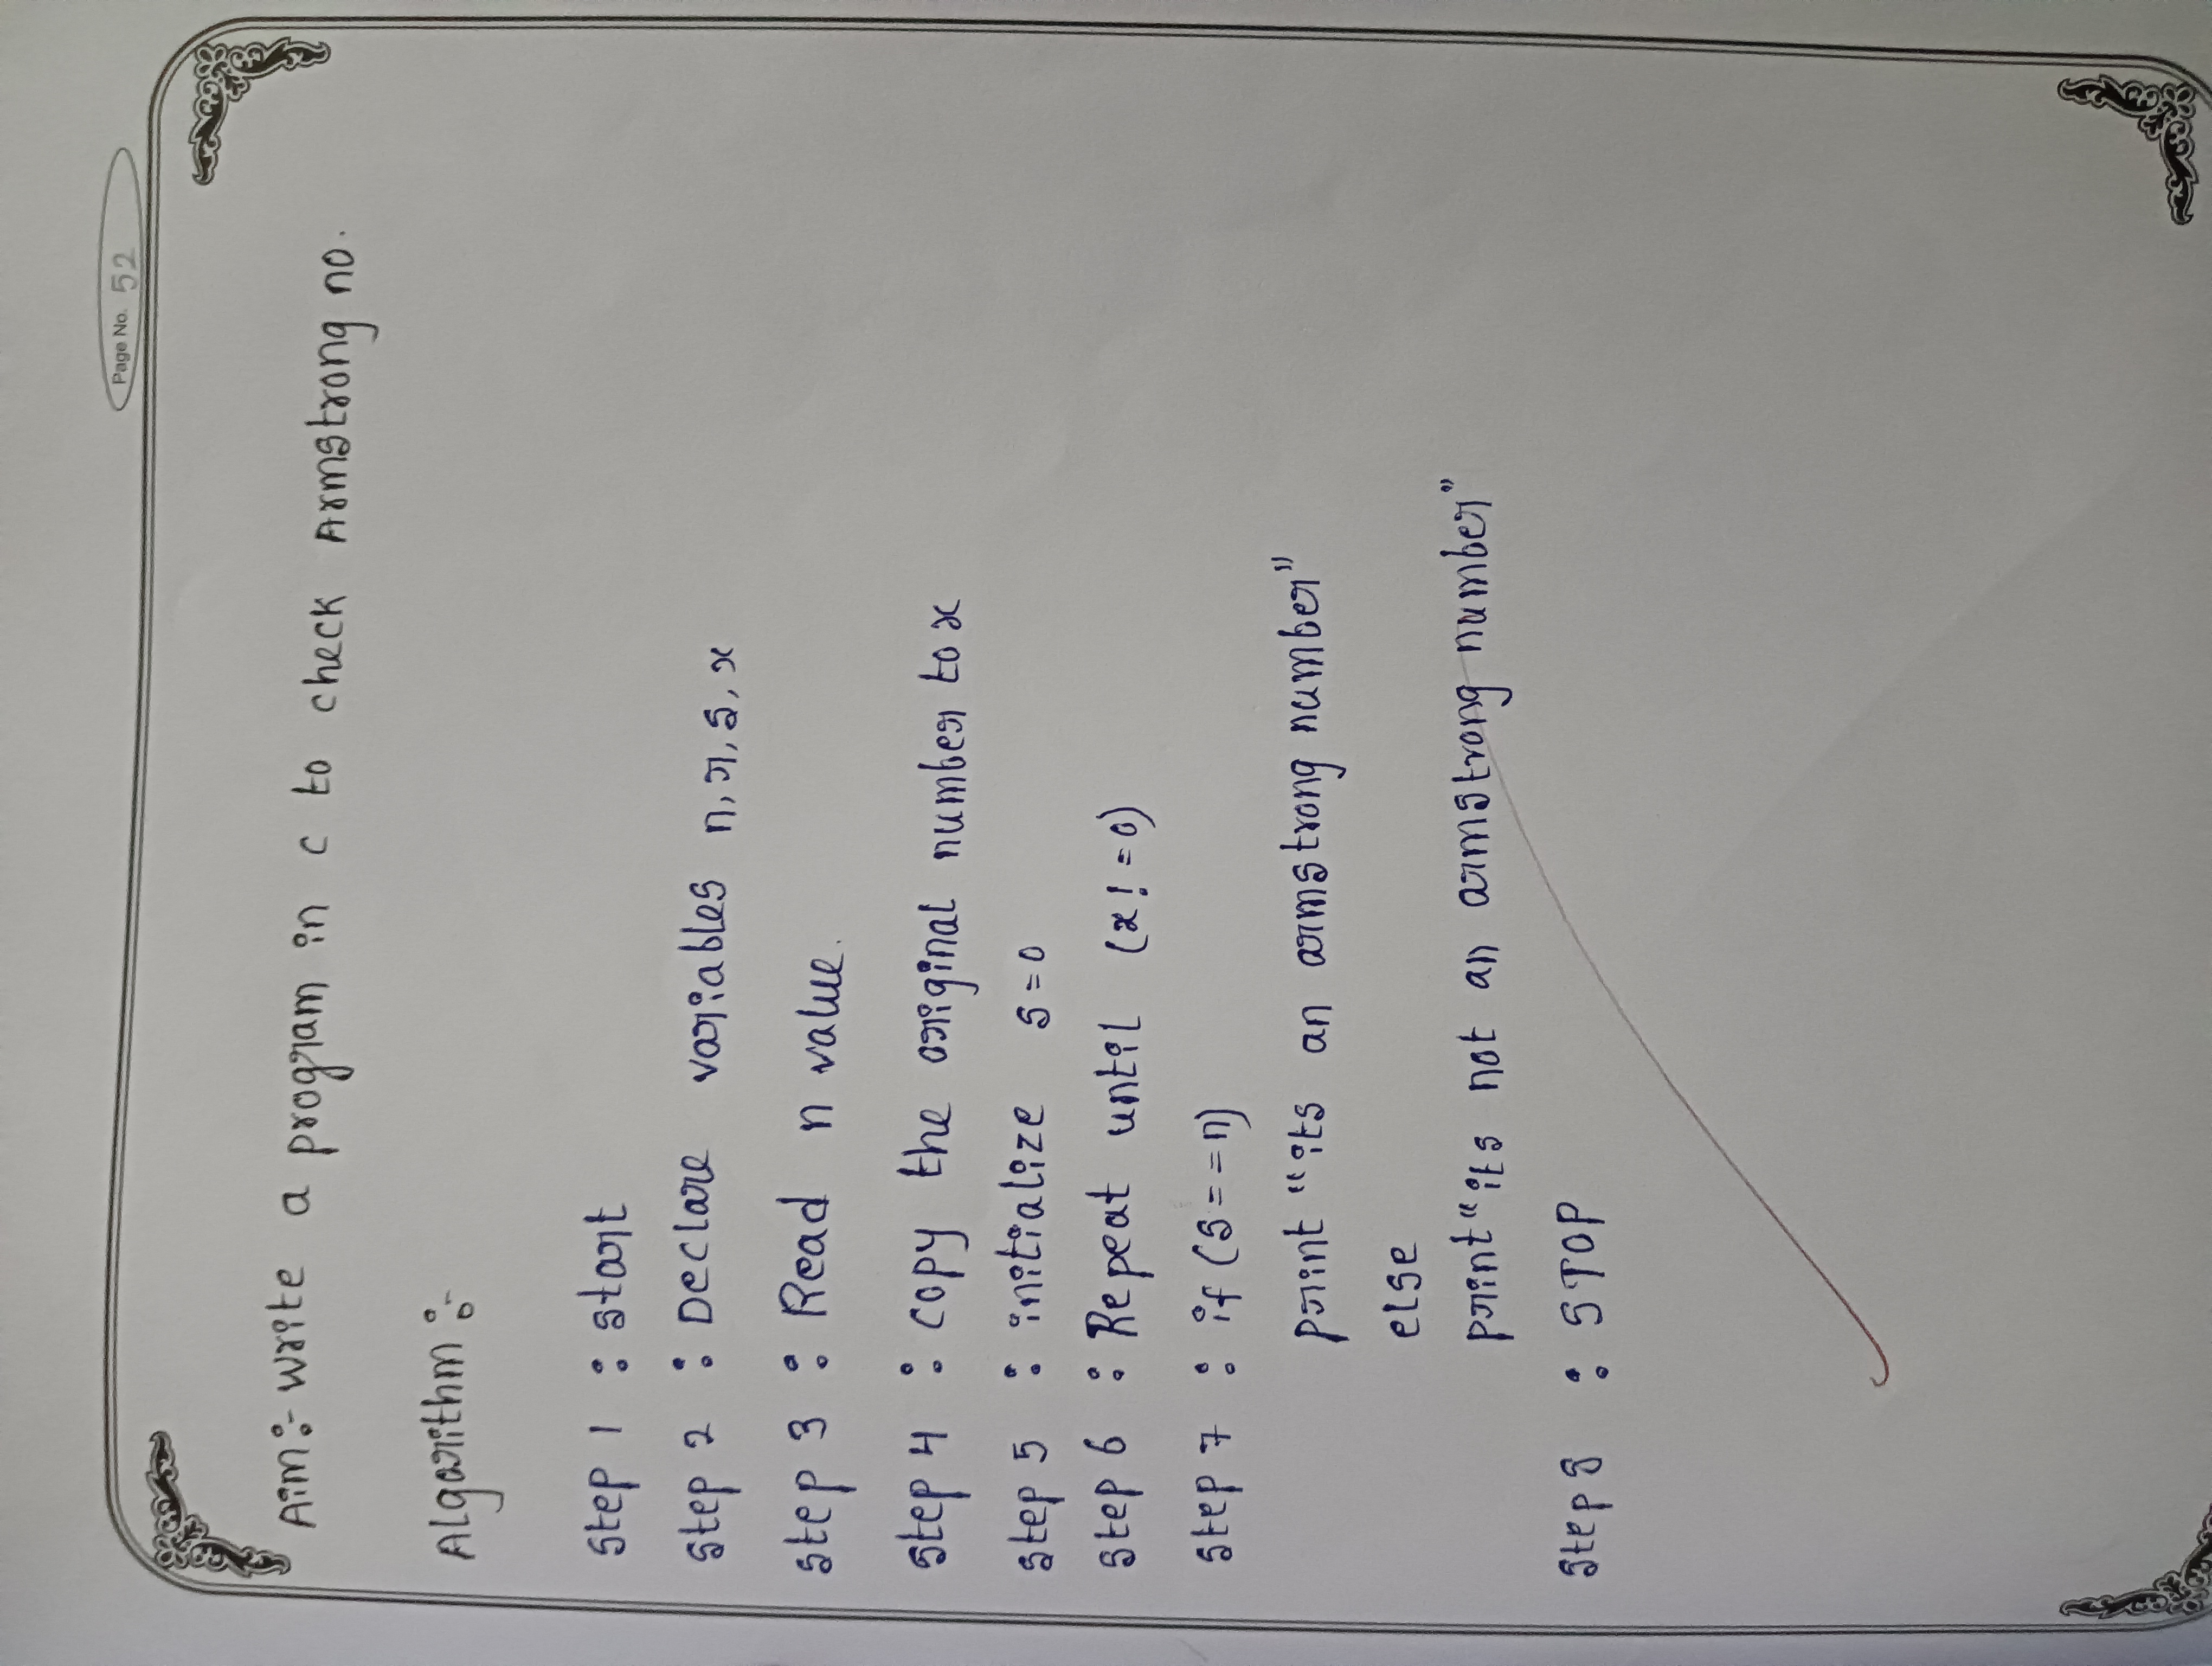 Page No. 52
Aim:- write a program in c to check Armstrong no.
Algorithm :-
step 1 : start
step 2 : Declare variables n, r, s, x
step 3 : Read n value.
step 4 : copy the original number to x
step 5 : initialize s=0
step 6 : Repeat until (x!=0)
step 7 : if (s==n)
print "its an armstrong number"
else
print "its not an armstrong number"
step 8 : STOP